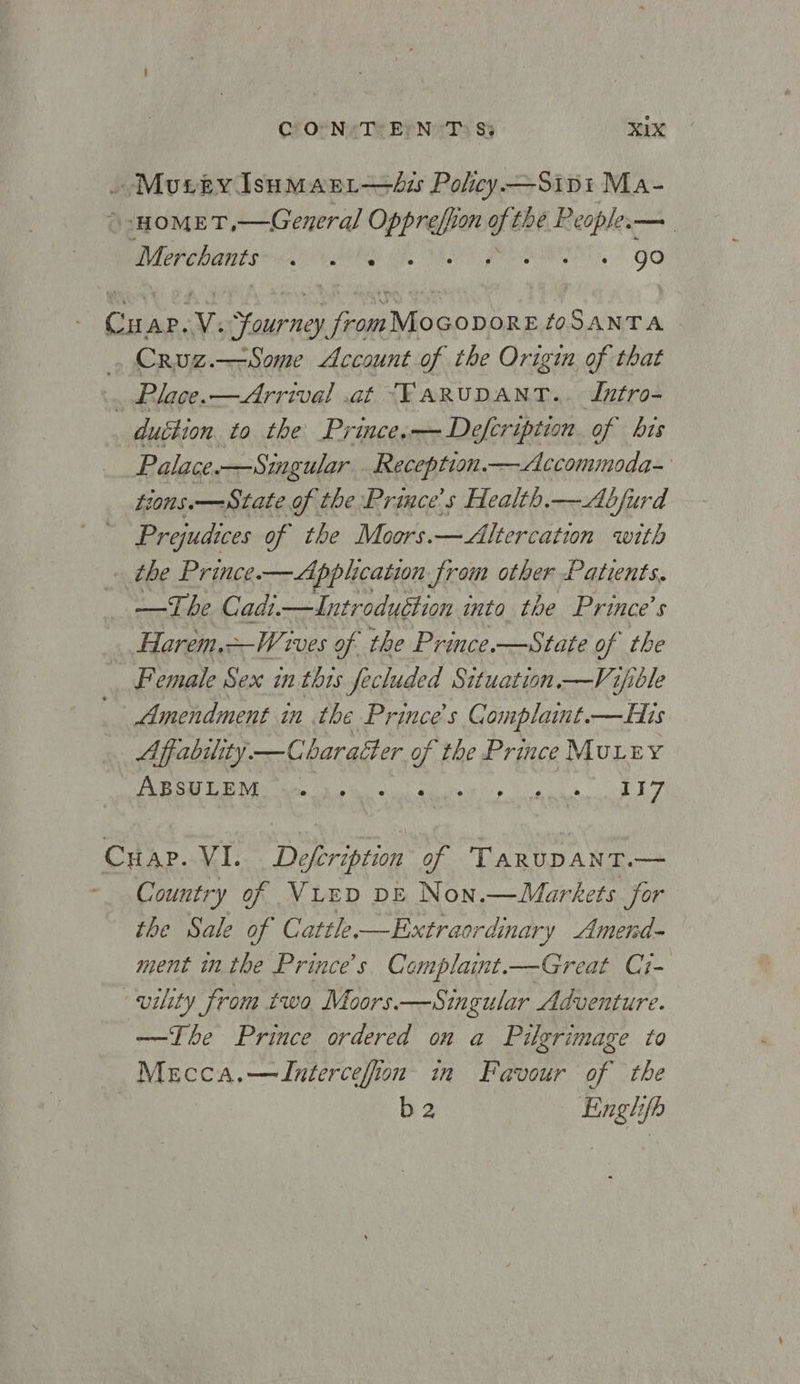 CONTENTS. xix
MULEY ISHMAEL—his Policy.—SIDI MA-
HOMET,—General Oppreſſion of the People.—
Merchants . . . . . . . . 90
CHAP. V. Journey from MOGODORE to SANTA
CRUZ.—Some Account of the Origin of that
Place.—Arrival at TARUDANT. Intro-
duction to the Prince.—Deſcription of his
Palace.—Singular Reception.—Accommoda-
tions.—State of the Prince's Health.—Abſurd
Prejudices of the Moors.—Altercation with
the Prince.—Application from other Patients.
—The Cadi.—Introduction into the Prince's
Harem.—Wives of the Prince.—State of the
Female Sex in this ſecluded Situation.—Viſible
Amendment in the Prince's Complaint.—His
Affability.—Character of the Prince MULEY
ABSULEM . . . . . . . . 117
CHAP. VI. Deſcription of TARUDANT.—
Country of VLED DE NON.—Markets for
the Sale of Cattle.—Extraordinary Amend-
ment in the Prince's Complaint.—Great Ci-
vility from two Moors.—Singular Adventure.
—The Prince ordered on a Pilgrimage to
MECCA.—Interceſſion in Favour of the
b2 Engliſh